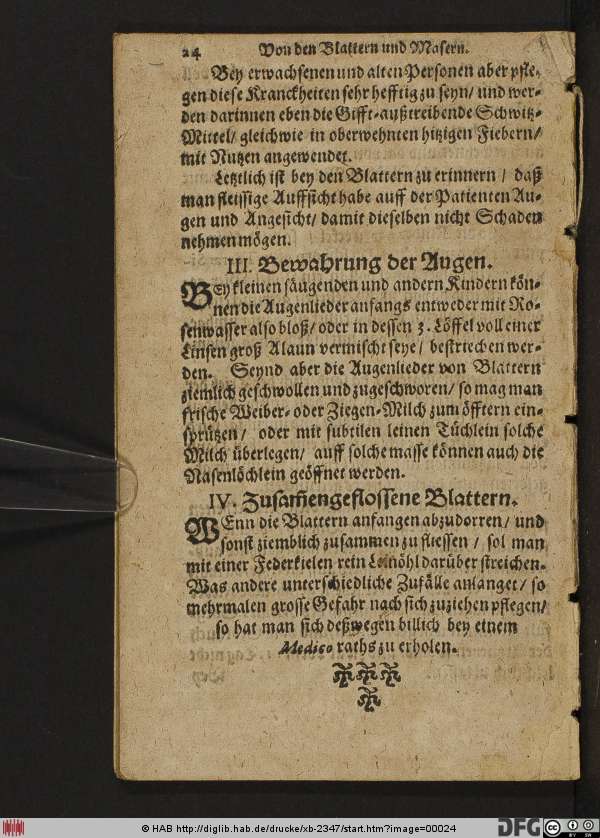 24 Von den Blattern und Masern.
Bey erwachsenen und alten Personen aber pfle-
gen diese Kranckheiten sehr hefftig zu seyn/ und wer-
den darinnen eben die Gifft-außtreibende Schwitz-
Mittel/ gleichwie in oberwehnten hitzigen Fiebern/
mit Nutzen angewendet.
Letztlich ist bey den Blattern zu erinnern / daß
man fleissige Auffsicht habe auff der Patienten Au-
gen und Angesicht/ damit dieselben nicht Schaden
nehmen mögen.
III. Bewahrung der Augen.
BEy kleinen säugenden und andern Kindern kön-
nen die Augenlieder anfangs entweder mit Ro-
senwasser also bloß/ oder in dessen 3. Löffel voll einer
Linsen groß Alaun vermischt seye/ bestriechen wer-
den. Seynd aber die Augenlieder von Blattern
ziemlich geschwollen und zugeschworen/ so mag man
frische Weiber- oder Ziegen-Milch zum öfftern ein-
sprützen/ oder mit subtilen leinen Tüchlein solche
Milch überlegen/ auff solche masse können auch die
Nasenlöchlein geöffnet werden.
IV. Zusam̃engeflossene Blattern.
WEnn die Blattern anfangen abzudorren/ und
sonst ziemblich zusammen zu fliessen / sol man
mit einer Federkielen rein Leinöhl darüber streichen.
Was andere unterschiedliche Zufälle anlanget/ so
mehrmalen grosse Gefahr nach sich zuziehen pflegen/
so hat man sich deßwegen billich bey einem
Medico raths zu erholen.
© HAB http://diglib.hab.de/drucke/xb-2347/start.htm?image=00024
DFG
CC BY SA